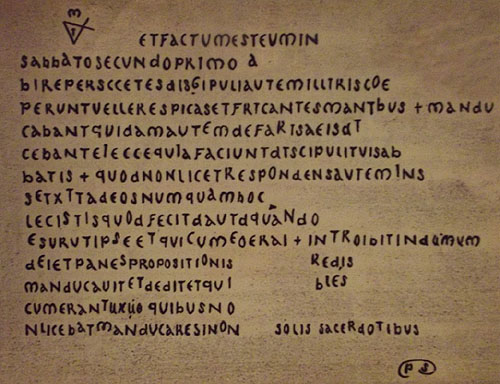 ETFACTUMESTEUMIN
SABBATOSECUNDOPRIMO A
BIREPERSCCETESDISGIPULIAUTEMILLTRISCOE
PERUNTVELLERESPICASETFRTCANTESMANTBUS + MANDU
CABANTQUIDAMAUTEMDEFARTSAEISDT
CEBANTEIECCEQUIAFACIUNTDTSCIPULITUISAB
BATIS + QUODNONLICETRESPONDENSAUTEMINS
SETXTTADEOSNUMQUAMBOC
LECISTISQUODFECITDAUTDQUANDO
ESURUTIPSEETQUICUMEOERAI + INTROIBITINDUMUM
DEIETPANESPROPOSITIONIS REDIS
MANDUCAUITETDEDITETQUI BLES
CUMERANTUXUO QUIBUSNO
NLICEBATMANDUCARESINON SOLIS SACERDOTIBUS
PS